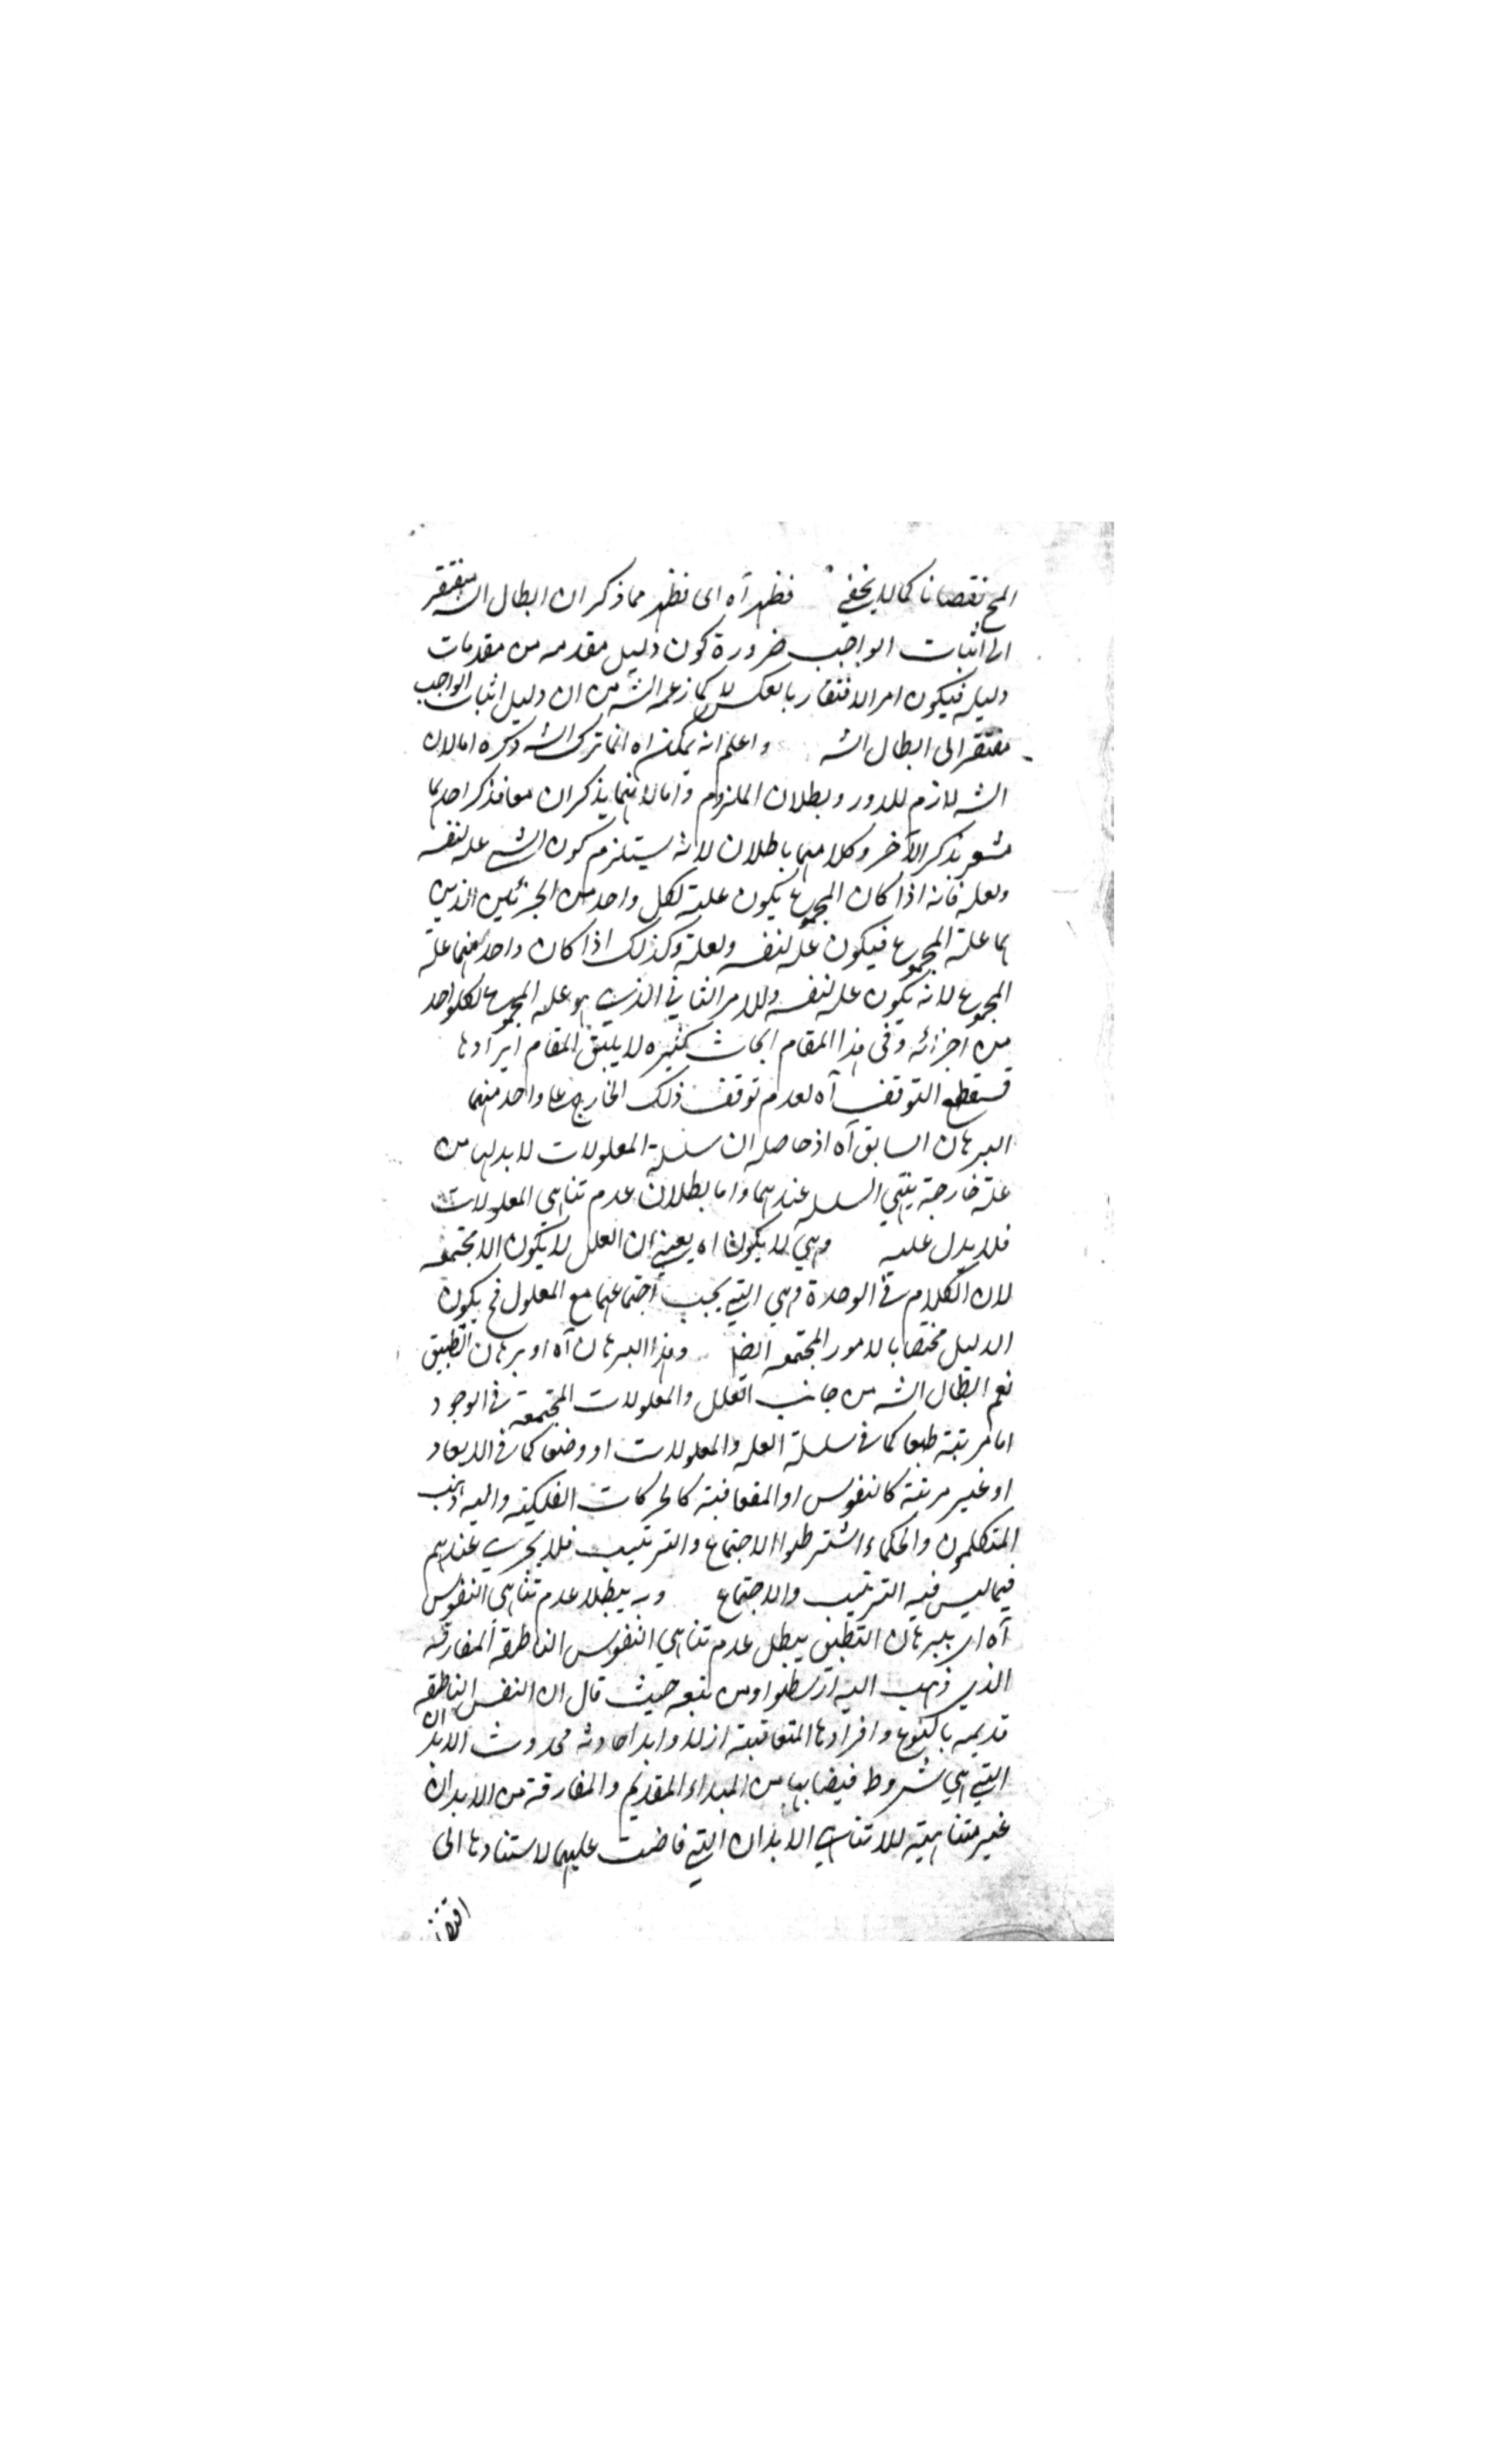 المح نقصانا كما لا يخفى فظهر آه اى فظهر مما ذكر ان ابطال التس يفتقر
الى اثبات الواجب ضرورة كون دليل مقدمه من مقدمات
دليله فيكون امر الافتقار بالعكس لا كما زعمه الش من ان دليل اثبات الواجب
مفتقر الى ابطال التس واعلم انه يمكن اه انما ترك الش ذكره اما لان
التس لازم للدور وبطلان الملزوم واما لانهما يذكران معا فذكر احدهما
مشعر بذكر الآخر وكلاهما باطلان لانه يستلزم كون الشي علة لنفسه
ولعله فانه اذا كان المجموع يكون علية لكل واحد من الجزئين الذين
هما علة المجموع فيكون علة لنفسه ولعلة وكذلك اذا كان واحد منهما علة
المجموع لانه يكون علة لنفسه وللامر الثاني الذي هو علة المجموع لكلواحد
من اجزائه وفى هذا المقام ابحاث كثيره لا يليق المقام ايرادها
فسقطع التوقف آه لعدم توقف ذلك الخارج على واحد منهما
البرهان السابق آه اذ حاصله ان سلسلة المعلولات لا بد لها من
علة خارجة ينتهي السلسله عندها واما بطلان عدم تناهي المعلولات
فلا يدل عليه وهي لا يكون اه يعني ان العلل لا يكون الا مجتمعه
لان الكلام في الوحدة وهي التي يجب اجتماعها مع المعلول فح يكون
الدليل مختصا بالامور المجتمعه ايضا وهذا البرهان آه او برهان التطبيق
نعم ابطال التس من جانب العلل والمعلولات المجتمعة في الوجود
اما مرتبة طبعا كما في سلسلة العله والمعلولات او وضعا كما في الابعاد
او غير مرتبة كالنفوس او المتعاقبة كالحركات الفلكية واليه ذهب
المتكلمون والحكماء اشترطوا الاجتماع والترتيب فلا يجرى عندهم
فيما ليس فيه الترتيب والاجتماع وبه يبطل عدم تناهى النفوس
آه اى ببرهان التطبيق يبطل عدم تناهي النفوس الناطقة المفارقه
الذي ذهب اليه ارسطو ومن تبعه حيث قال ان النفس الناطقه
قديمه بالنوع وافرادها المتعاقبة ازلا وابدا حادثه بحدوث الابدان
التي هي شروط فيضانها من المبداء القديم والمفارقة من الابدان
غير متناهية للاتناهى الابدان التي فاضت عليها لاستنادها الى